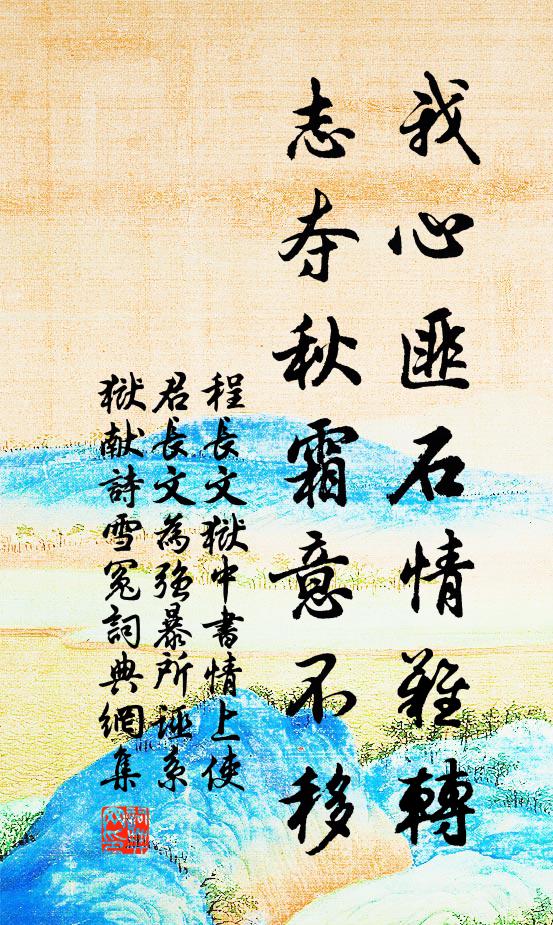 我心匪石情難轉
志夺秋霜意不移
程長文獄中書情上使
君長文為強暴所誣系
獄献詩雪冤詞典網集